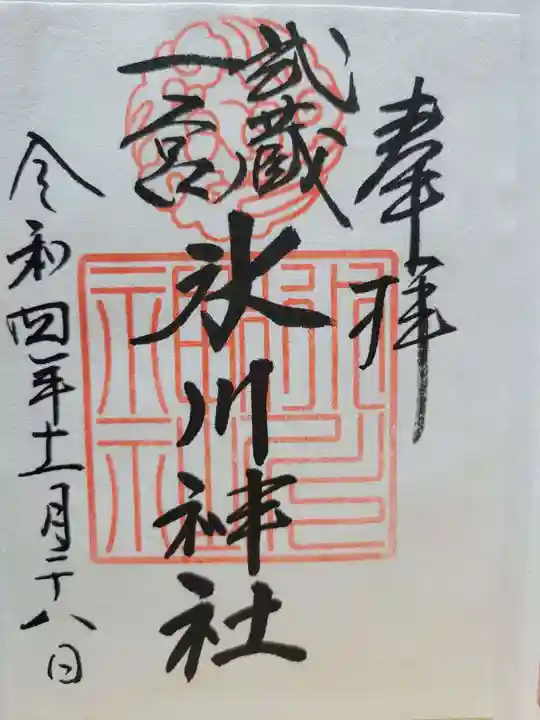 奉拝
武蔵
一宮
氷川神社
令和四年十一月二十八日
氷川神社